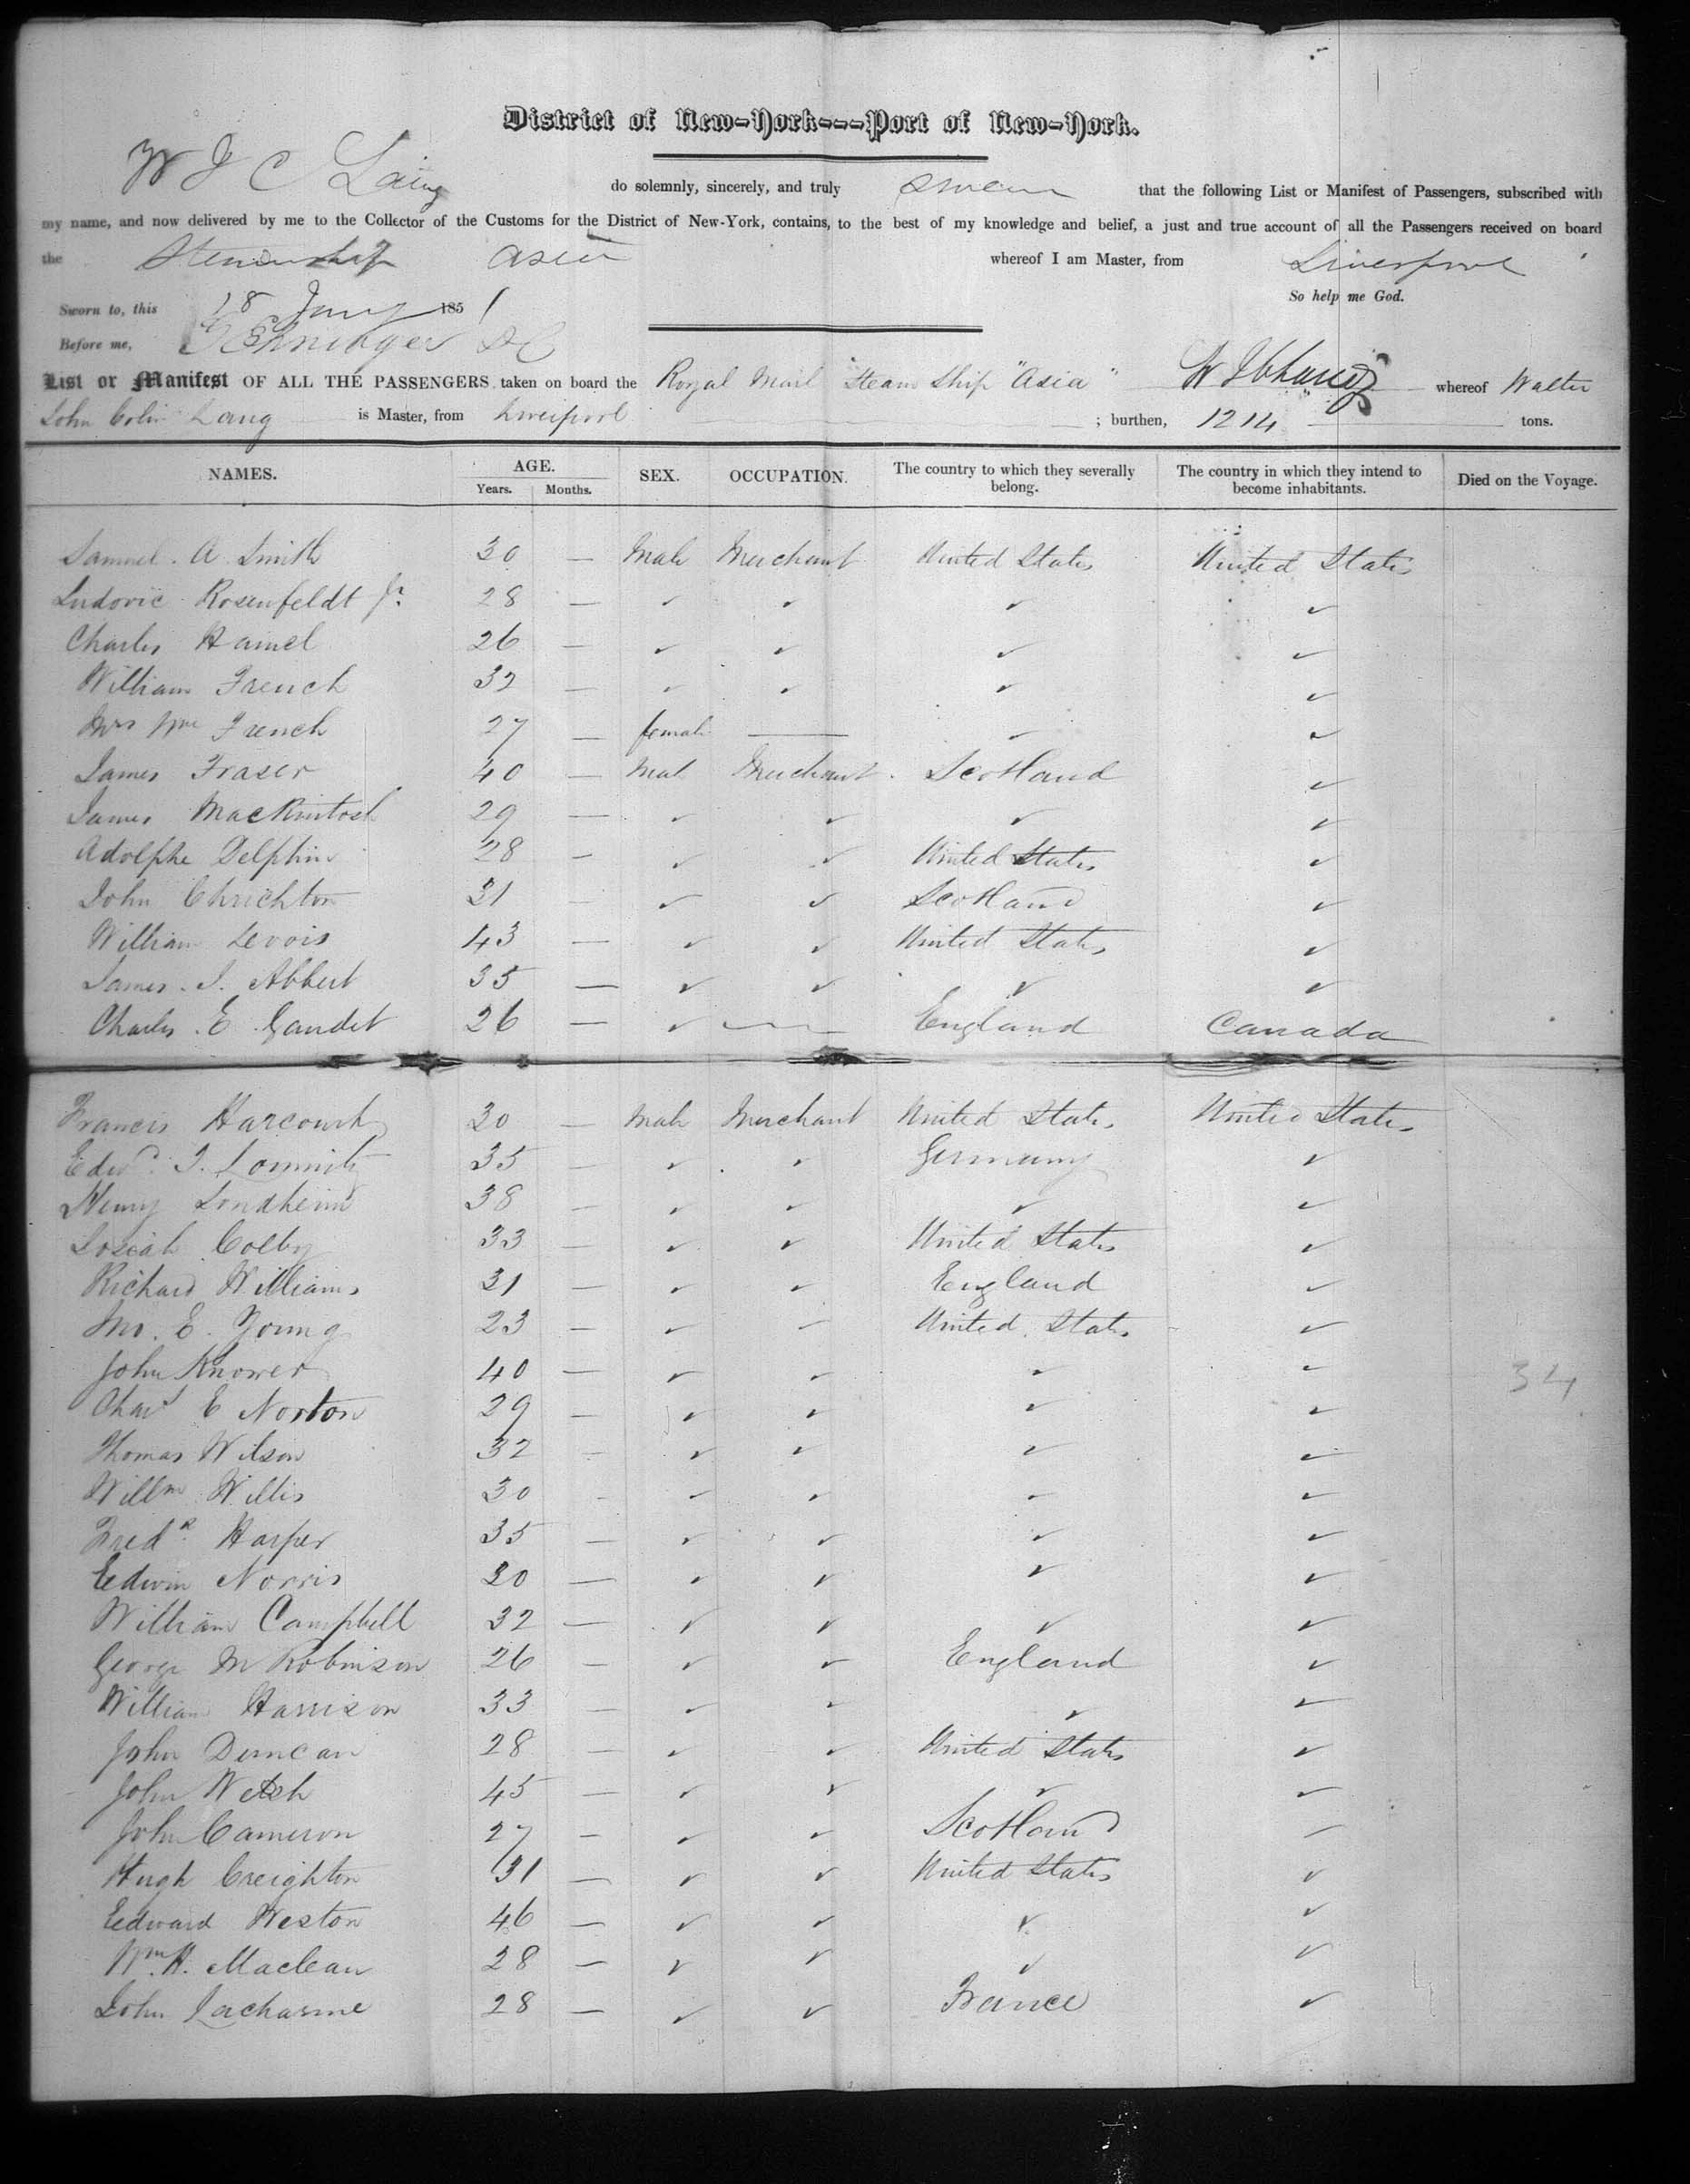 District of New-York---Port of New-York.
W J C Lang do solemnly, sincerely, and truly swear that the following List or Manifest of Passengers, subscribed with
my name, and now delivered by me to the Collector of the Customs for the District of New-York, contains, to the best of my knowledge and belief, a just and true account of all the Passengers received on board
the Steamship Asia whereof I am Master, from Liverpool
So help me God.
Sworn to, this 18 Jany 1851
Before me,
List or Manifest OF ALL THE PASSENGERS taken on board the Royal Mail Steam Ship "Asia" W J C Lang whereof Walter
John Colin Lang is Master, from Liverpool ; burthen, 1214 tons.
NAMES. AGE. SEX. OCCUPATION. The country to which they severally belong. The country in which they intend to become inhabitants. Died on the Voyage.
Years. Months.
Samuel. A Smith 30 — Male Merchant United States United States
Ludovic Rosenfeldt Jr. 28 — ✓ ✓ ✓ ✓
Charles Hamel 26 — ✓ ✓ ✓ ✓
William French 32 — ✓ ✓ ✓ ✓
Mrs Wm French 27 — female — ✓ ✓
James Fraser 40 — Male Merchant Scotland ✓
James MacKintosh 29 — ✓ ✓ ✓ ✓
Adolphe Delphin 28 — ✓ ✓ United States ✓
John Chrichton 31 — ✓ ✓ Scotland ✓
William Levois 43 — ✓ ✓ United States ✓
James. J. Abbert 35 — ✓ ✓ ✓ ✓
Charles. E. Gaudet 26 — ✓ — England Canada
Francis Harcourt 30 — Male Merchant United States United States
Edwd. J. 35 — ✓ ✓ Germany ✓
Henry Sondheim 38 — ✓ ✓ ✓ ✓
Josiah Colby 33 — ✓ ✓ United States ✓
Richard Williams 31 — ✓ ✓ England ✓
Jno. E. Young 23 — ✓ ✓ United States ✓
John Knower 40 — ✓ ✓ ✓ ✓
34
Chas E Norton 29 — ✓ ✓ ✓ ✓
Thomas Wilson 32 — ✓ ✓ ✓ ✓
Willm Willis 30 — ✓ ✓ ✓ ✓
Fredk. Harper 35 — ✓ ✓ ✓ ✓
Edwin Norris 30 — ✓ ✓ ✓ ✓
William Campbell 32 — ✓ ✓ ✓ ✓
George M Robinson 26 — ✓ ✓ England ✓
William Harrison 33 — ✓ ✓ ✓ ✓
John Duncan 28 — ✓ ✓ United States ✓
John Welsh 45 — ✓ ✓ ✓ ✓
John Cameron 27 — ✓ ✓ Scotland ✓
Hugh Creighton 31 — ✓ ✓ United States ✓
Edward Weston 46 — ✓ ✓ ✓ ✓
Wm. H. Maclean 28 — ✓ ✓ ✓ ✓
John Lacharme 28 — ✓ ✓ France ✓